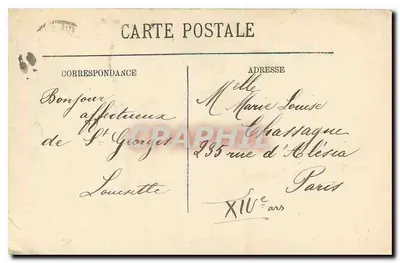 CARTE POSTALE
CORRESPONDANCE
Bonjour
affectueux
de St Georges
Louisette
ADRESSE
Melle
Marie Louise
Chassaque
235 rue d'Alésia
Paris
XIVe arr
CPAPHIL